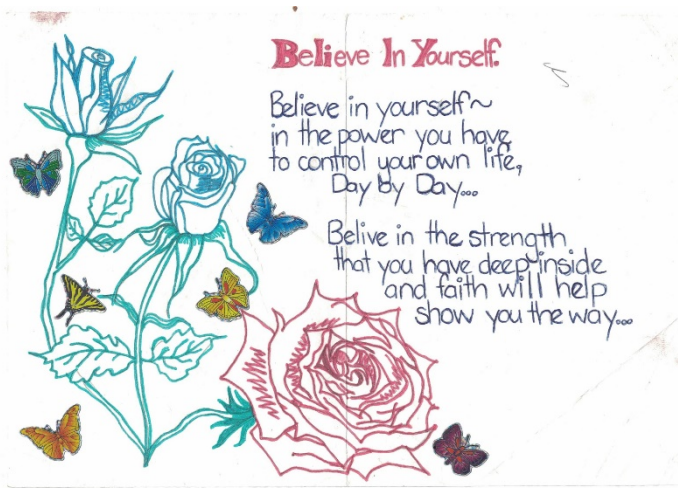 Believe In Yourself.
Believe in yourself~
in the power you have
to control your own life,
Day by Day...
Belive in the strength
that you have deep inside
and faith will help
show you the way...